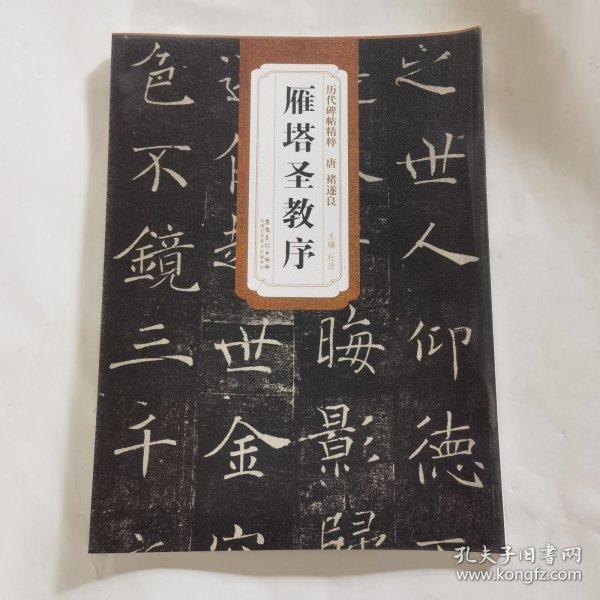 历代碑帖精粹 唐 褚遂良
主编 杜浩
雁塔圣教序
安徽美术出版社
之世人仰德
晦影歸
世金容
色不鏡三千
孔夫子旧书网
www.kongfz.com